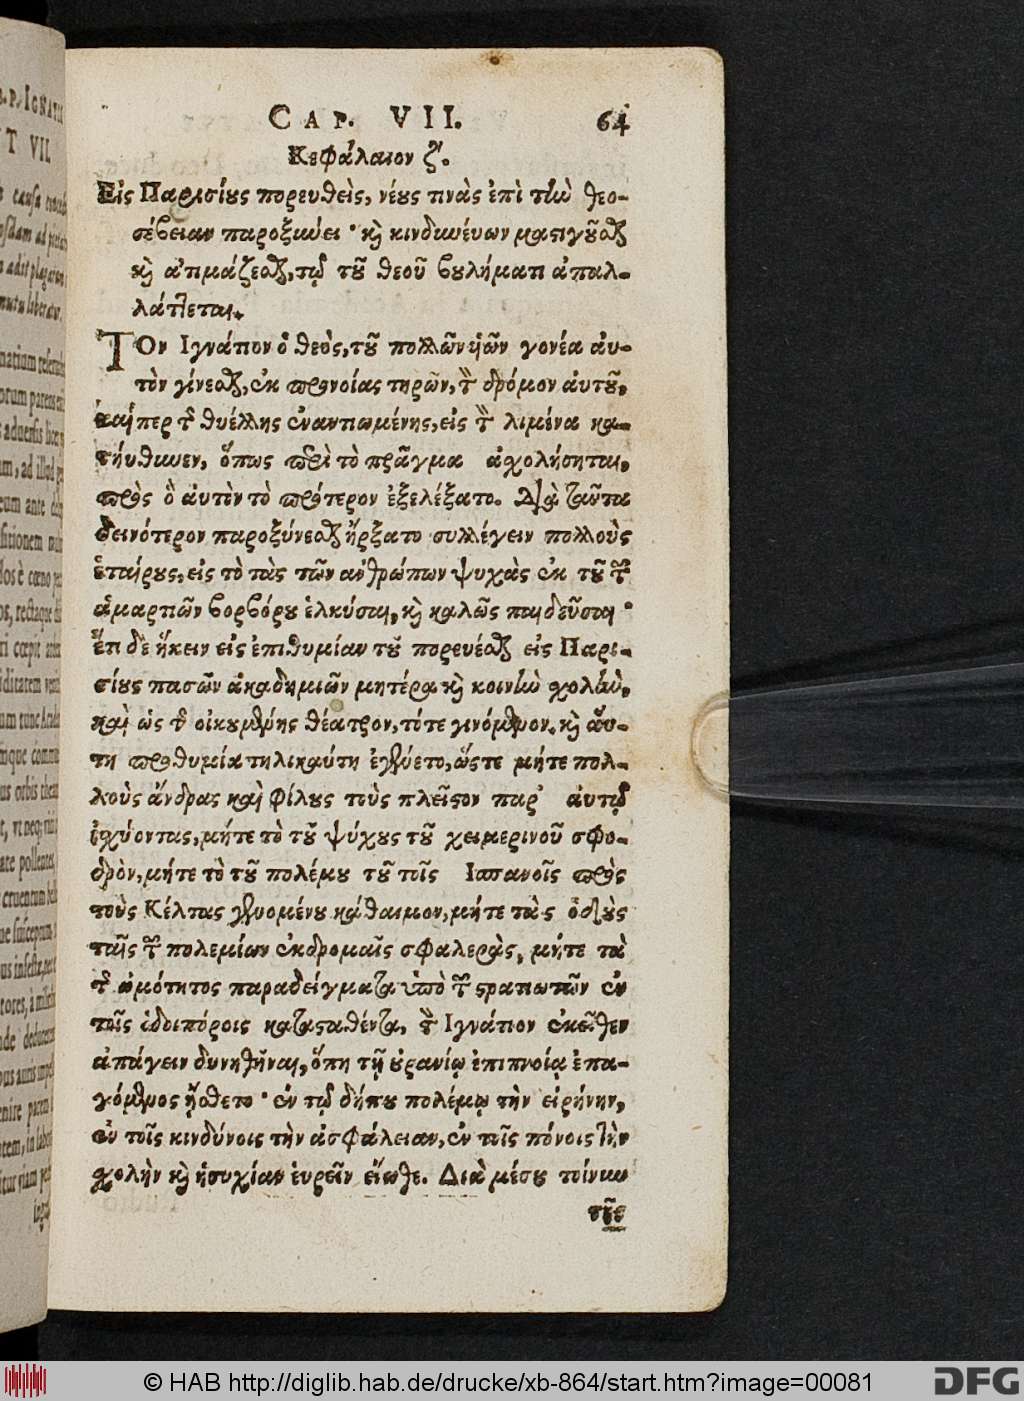 CAP. VII. 64
Κεφάλαιον ζʹ.
Εἰς Παρισίους πορευθεὶς, νέους τινὰς ἐπὶ τὴν θεο-
σέβειαν παροξύνει· καὶ κινδυνεύων μαστιγοῦσθαι
καὶ ἀτιμάζεσθαι, τῷ τοῦ θεοῦ βουλήματι ἀπαλ-
λάττεται.
ΤΟν Ιγνάτιον ὁ θεὸς, τοῦ πολλῶν ὑιῶν γονέα ἀυ-
τὸν γίνεσθαι, ἐκ προνοίας τηρῶν, τὸν δρόμον ἀυτοῦ,
καίπερ τῆς θυέλλης ἐναντιωμένης, εἰς τὸν λιμένα κα-
τήυθυνεν, ὅπως περὶ τὸ πρᾶγμα ἀσχολήσηται,
πρὸς ὃ ἀυτὸν τὸ πρότερον ἐξελέξατο. Διὰ ταῦτα
δεινότερον παροξύνεσθαι ἤρξατο συλλέγειν πολλοὺς
ἑταίρους, εἰς τὸ τὰς τῶν ανθρώπων ψυχὰς ἐκ τοῦ τῶν
ἁμαρτιῶν βορβόρου ἑλκύσαι, καὶ καλῶς παιδεῦσαι·
ἔτι δὲ ἥκειν εἰς ἐπιθυμίαν τοῦ πορευέσθαι εἰς Παρι-
σίους πασῶν ἀκαδημιῶν μητέρα καὶ κοινὴν σχολὴν,
καὶ ὡς τῆς οἰκουμένης θέατρον, τότε γινόμενον. καὶ ἅυ-
τη προθυμία τηλικαύτη ἐγένετο, ὥστε μήτε πολ-
λοὺς ἄνδρας καὶ φίλους τοὺς πλεῖστον παρ' ἀυτῷ
ἰσχύοντας, μήτε τὸ τοῦ ψύχους τοῦ χειμερινοῦ σφο-
δρὸν, μήτε τὸ τοῦ πολέμου τοῦ τοῖς Ισπανοῖς πρὸς
τοὺς Κέλτας γενομένου κάθαιμον, μήτε τὰς ὁδοὺς
ταῖς τῶν πολεμίων ἐκδρομαῖς σφαλερὰς, μήτε τὰ
τῆς ὠμότητος παραδείγματα ὑπὸ τῶν στρατιωτῶν ἐν
τοῖς ὁδοιπόροις κατασταθέντα, τὸν Ιγνάτιον ἐκεῖθεν
ἀπάγειν δυνηθῆναι, ὅπη τῇ οὐρανίῳ ἐπιπνοίᾳ ἐπα-
γόμενος ᾔσθετο· ἐν τῷ δήπου πολέμῳ τὴν εἰρήνην,
ἐν τοῖς κινδύνοις τὴν ἀσφάλειαν, ἐν τοῖς πόνοις τὴν
σχολὴν καὶ ἡσυχίαν ἑυρεῖν εἴωθε. Διὰ μέσου τοίνυν
τῆς
© HAB http://diglib.hab.de/drucke/xb-864/start.htm?image=00081
DFG